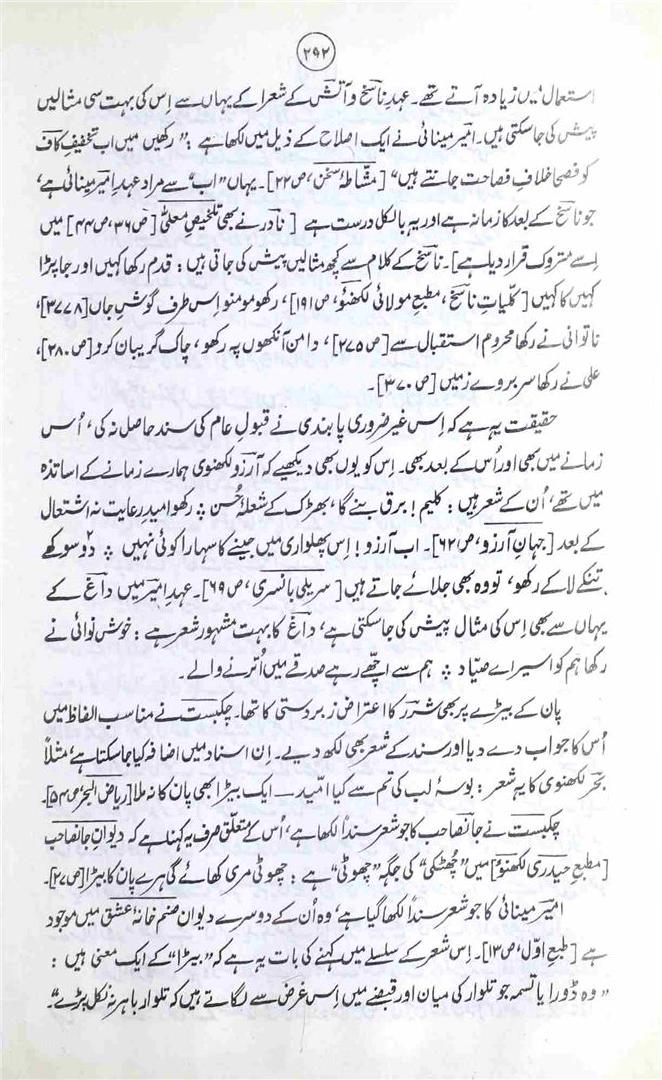 ۲۹۲
استعمال میں زیادہ آتے تھے۔ عہدِ ناسخ و آتش کے شعرا کے یہاں سے اِس کی بہت سی مثالیں
پیش کی جاسکتی ہیں۔ امیر مینائی نے ایک اصلاح کے ذیل میں لکھا ہے : ”رکھیں میں اب تخفیفِ کاف
کو فصحا خلافِ فصاحت جانتے ہیں“ [مشاطۂ سخن، ص ۲۲]۔ یہاں ”اب“ سے مراد عہدِ امیر مینائی ہے،
جو ناسخ کے بعد کا زمانہ ہے اور یہ بالکل درست ہے [نادر نے بھی تلخیصِ معلیٰ [ص ۳۶، ص ۴۴] میں
اِسے متروک قرار دیا ہے]۔ ناسخ کے کلام سے کچھ مثالیں پیش کی جاتی ہیں : قدم رکھا کہیں اور جا پڑا
کہیں کا کہیں [کلیاتِ ناسخ، مطبع مولائی لکھنؤ، ص ۱۹۱]، رکھو مومنو اِس طرف گوشِ جاں [۳۷۷۸]،
ناتوانی نے رکھا محروم استقبال سے [ص ۲۷۵]، دامن آنکھوں پہ رکھو، چاک گریبان کرو [ص ۲۸۰]،
علی نے رکھا سر بروے زمیں [ص ۳۷۰]۔
حقیقت یہ ہے کہ اِس غیر ضروری پابندی نے قبولِ عام کی سند حاصل نہ کی، اُس
زمانے میں بھی اور اُس کے بعد بھی۔ اِس کو یوں بھی دیکھیے کہ آرزو لکھنوی ہمارے زمانے کے اساتذہ
میں تھے، اُن کے شعر ہیں : کلیم! برق بنے گا، بھڑک کے شعلۂ حُسن ؞ رکھو امیدِ رعایت نہ اشتعال
کے بعد [جہانِ آرزو، ص ۶۲]۔ اب آرزو! اِس پھلواری میں جینے کا سہارا کوئی نہیں ؞ دو سوکھے
تنکے لا کے رکھو، تو وہ بھی جلائے جاتے ہیں [سریلی بانسری، ص ۶۹]۔ عہدِ امیر میں داغ کے
یہاں سے بھی اِس کی مثال پیش کی جاسکتی ہے، داغ کا بہت مشہور شعر ہے : خوش نوائی نے
رکھا ہم کو اسیر اے صیّاد ؞ ہم سے اچھّے رہے صدقے میں اُترنے والے۔
پان کے بیڑے پر بھی شرر کا اعتراض زبردستی کا تھا۔ چکبست نے مناسب الفاظ میں
اُس کا جواب دے دیا اور سند کے شعر بھی لکھ دیے۔ اِن اسناد میں اضافہ کیا جاسکتا ہے، مثلاً
بحر لکھنوی کا یہ شعر : بوسۂ لب کی تم سے کیا امّید — ایک بیڑا بھی پان کا نہ ملا [ریاض البحر، ص ۵۴]۔
چکبست نے جانصاحب کا جو شعر سنداً لکھا ہے، اُس کے متعلّق صرف یہ کہنا ہے کہ دیوانِ جانصاحب
[مطبع حیدری لکھنؤ] میں ”چُھٹکی“ کی جگہ ”چھوٹی“ ہے : چھوٹی مری کھائے گی ہرے پان کا بیڑا [ص ۲۷]۔
امیر مینائی کا جو شعر سنداً لکھا گیا ہے، وہ اُن کے دوسرے دیوان صنم خانۂ عشق میں موجود
ہے [طبع اوّل، ص ۱۳]۔ اِس شعر کے سلسلے میں کہنے کی بات یہ ہے کہ ”بیڑا“ کے ایک معنی ہیں :
”وہ ڈورا یا تسمہ جو تلوار کی میان اور قبضے میں اِس غرض سے لگاتے ہیں کہ تلوار باہر نہ نکل پڑے“۔